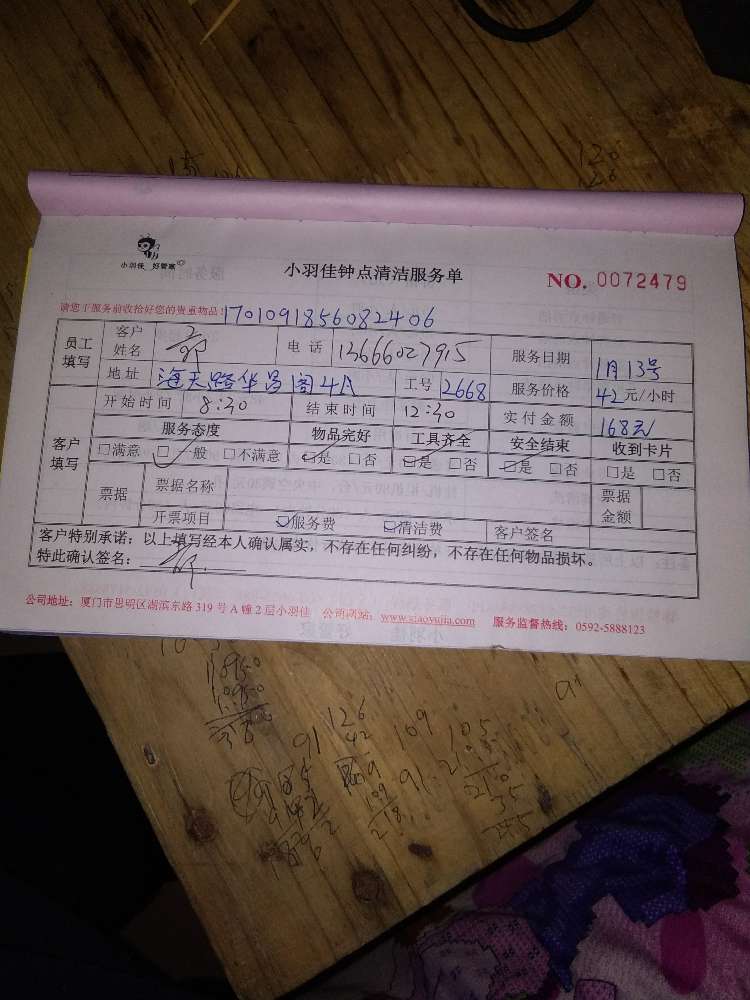 小羽佳 好管家
小羽佳钟点清洁服务单
NO. 0072479
请您于服务前收拾好您的贵重物品！1701091856082406
员工填写 客户姓名 电话 服务日期 1月13号
地址 海天路华昌阁4A 工号 2668 服务价格 42元/小时
客户填写 开始时间 8:30 结束时间 12:30 实付金额 168元
服务态度 物品完好 工具齐全 安全结束 收到卡片
□满意 □一般 □不满意 □是 □否 □是 □否 □是 □否 □是 □否
票据 票据名称 票据金额
开票项目 □服务费 □清洁费 客户签名
客户特别承诺：以上填写经本人确认属实，不存在任何纠纷，不存在任何物品损坏。
特此确认签名：
公司地址：厦门市思明区湖滨东路 319 号 A 幢 2 层小羽佳 公司网站：www.xiaoyujia.com 服务监督热线：0592-5888123
126
42
91
109
105
109
91
218
35